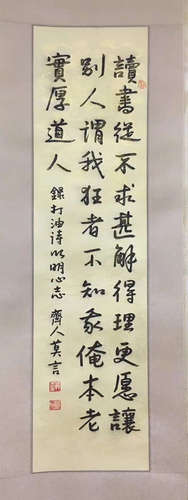 讀書從不求甚解得理更愿讓
別人謂我狂者不知我俺本老
實厚道人
錄打油詩以明心志 齊人莫言